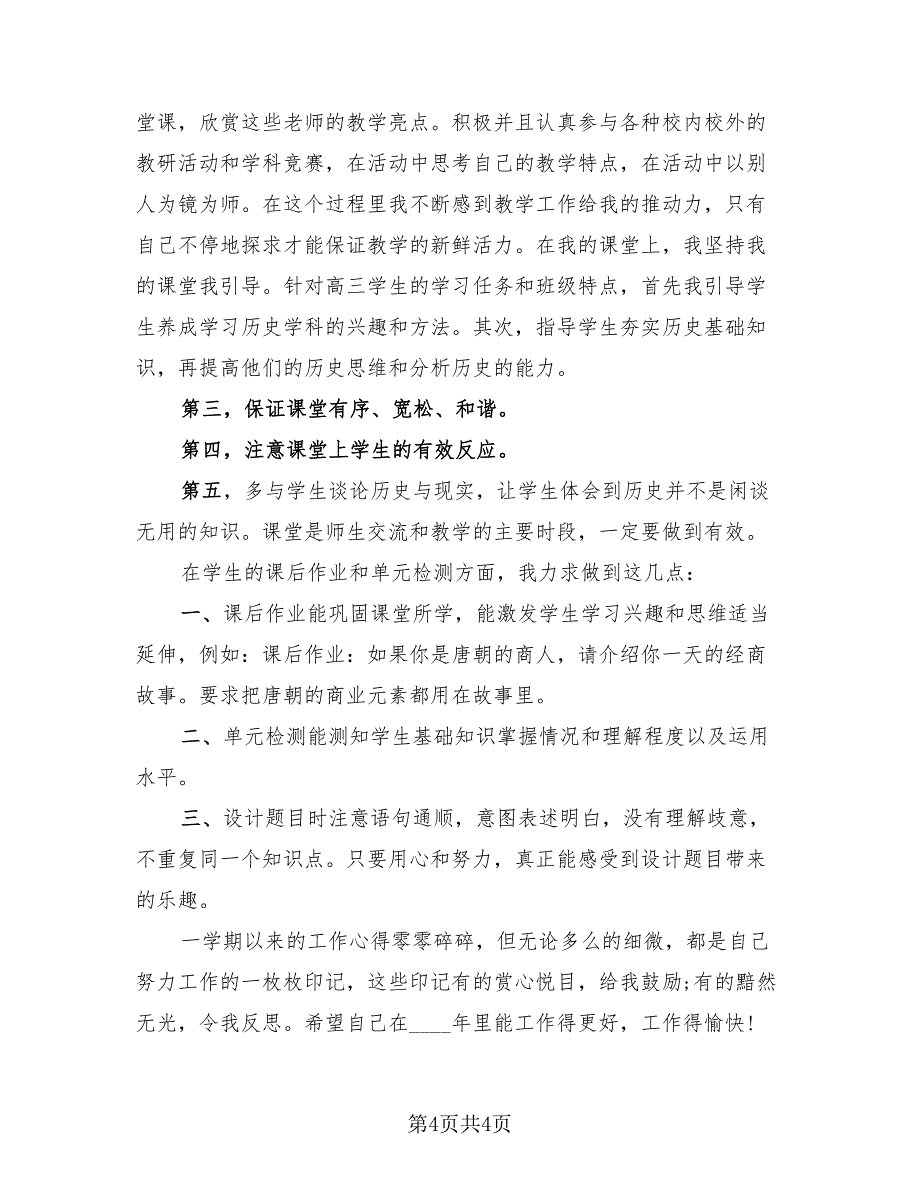 堂课，欣赏这些老师的教学亮点。积极并且认真参与各种校内校外的
教研活动和学科竞赛，在活动中思考自己的教学特点，在活动中以别
人为镜为师。在这个过程里我不断感到教学工作给我的推动力，只有
自己不停地探求才能保证教学的新鲜活力。在我的课堂上，我坚持我
的课堂我引导。针对高三学生的学习任务和班级特点，首先我引导学
生养成学习历史学科的兴趣和方法。其次，指导学生夯实历史基础知
识，再提高他们的历史思维和分析历史的能力。
第三，保证课堂有序、宽松、和谐。
第四，注意课堂上学生的有效反应。
第五，多与学生谈论历史与现实，让学生体会到历史并不是闲谈
无用的知识。课堂是师生交流和教学的主要时段，一定要做到有效。
在学生的课后作业和单元检测方面，我力求做到这几点：
一、课后作业能巩固课堂所学，能激发学生学习兴趣和思维适当
延伸，例如：课后作业：如果你是唐朝的商人，请介绍你一天的经商
故事。要求把唐朝的商业元素都用在故事里。
二、单元检测能测知学生基础知识掌握情况和理解程度以及运用
水平。
三、设计题目时注意语句通顺，意图表述明白，没有理解歧意，
不重复同一个知识点。只要用心和努力，真正能感受到设计题目带来
的乐趣。
一学期以来的工作心得零零碎碎，但无论多么的细微，都是自己
努力工作的一枚枚印记，这些印记有的赏心悦目，给我鼓励;有的黯然
无光，令我反思。希望自己在____年里能工作得更好，工作得愉快!
第4页共4页